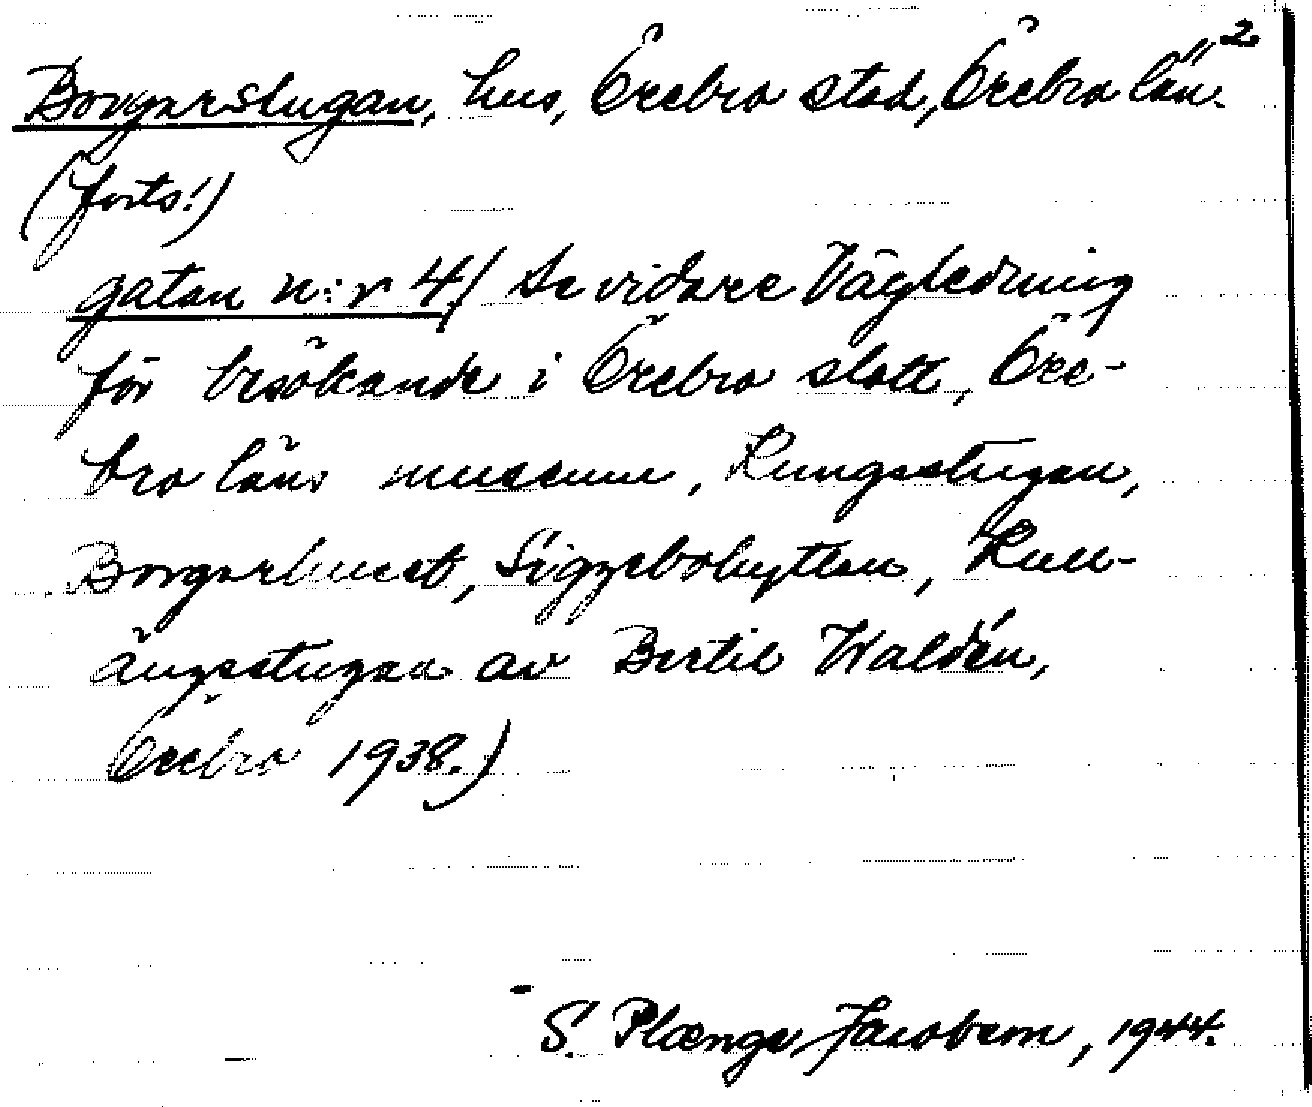 2
Borgarstugan, hus, Örebro stad, Örebro län.
(forts!)
gatan n:r 4/ Se vidare Vägledning
för besökande i Örebro slott, Öre-
bro läns museum, Kungsstugan,
Borgarhuset, Siggebohyttan, Kull-
ängsstugan av Bertil Waldén,
Örebro 1938.)
S. Plænge Jacobson, 1944.